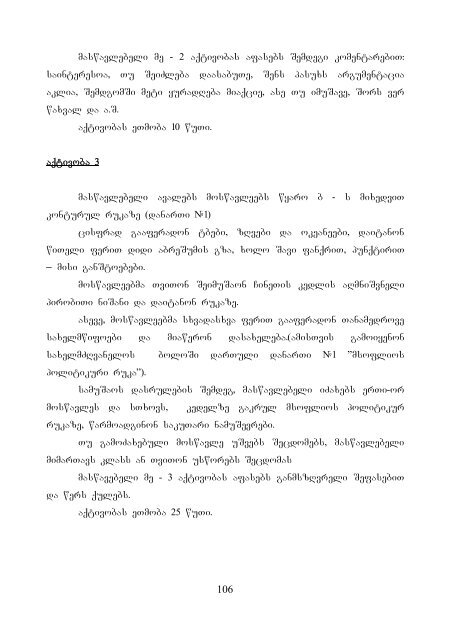 მასწავლებელი მე - 2 აქტივობას აფასებს შემდეგი კომენტარებით:
საინტერესოა, თუ შეიძლება დაასაბუთე, შენს პასუხს არგუმენტაცია
აკლია, შემდგომში მეტი ყურადღება მიაქციე, ასე თუ იმუშავე, შორს ვერ
წახვალ და ა.შ.
აქტივობას ეთმობა 10 წუთი.
აქტივობა 3
მასწავლებელი ავალებს მოსწავლეებს წყარო ბ - ს მიხედვით
კონტურულ რუკაზე (დანართი №1)
ცისფრად გააფერადონ ტბები, ზღვები და ოკეანეები, დაიტანონ
წითელი ფერით დიდი აბრეშუმის გზა, ხოლო შავი ფანქრით, პუნქტირით
– მისი განშტოებები.
მოსწავლეებმა თვითონ შეიმუშაონ ჩინეთის კედლის აღმნიშვნელი
პირობითი ნიშანი და დაიტანონ რუკაზე.
ასევე, მოსწავლეებმა სხვადასხვა ფერით გააფერადონ თანამედროვე
სახელმწიფოები და მიაწერონ დასახელება.(ამისთვის გამოიყენონ
სახელმძღვანელოს ბოლოში დართული დანართი №1 ”მსოფლიოს
პოლიტიკური რუკა”).
სამუშაოს დასრულების შემდეგ, მასწავლებელი იძახებს ერთი-ორ
მოსწავლეს და სთხოვს, კედელზე გაკრულ მსოფლიოს პოლიტიკურ
რუკაზე, წარმოადგინონ საკუთარი ნამუშევრები.
თუ გამოძახებული მოსწავლე უშვებს შეცდომებს, მასწავლებელი
მიმართავს კლასს ან თვითონ უსწორებს შეცდომას
მასწავებელი მე - 3 აქტივობას აფასებს განმსზღვრელი შეფასებით
და წერს ქულებს.
აქტივობას ეთმობა 25 წუთი.
106